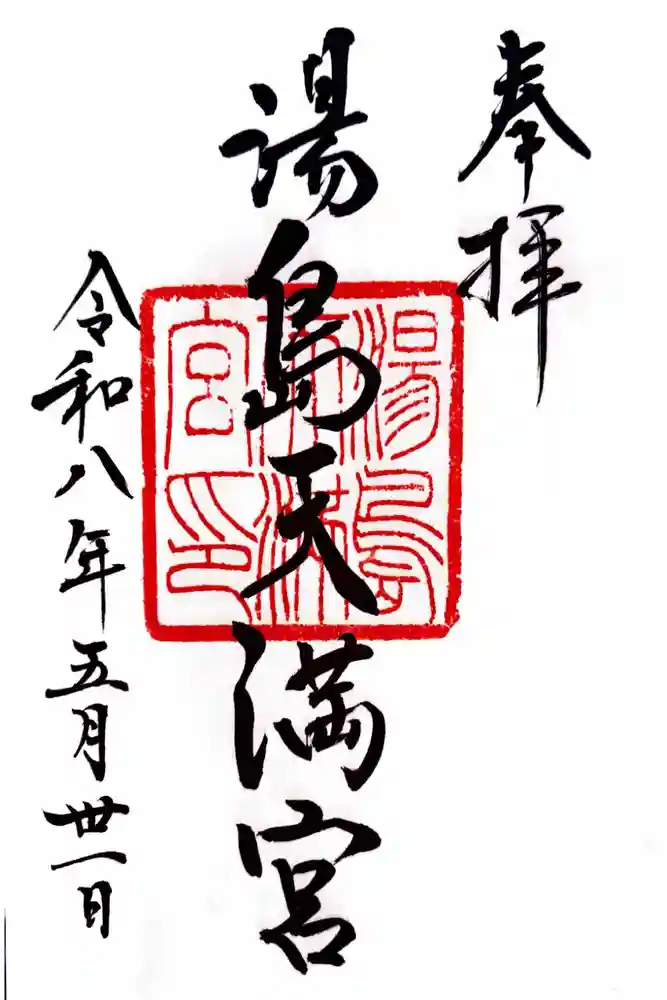 奉拝
湯島天満宮
湯島天満宮印
令和八年五月丗一日